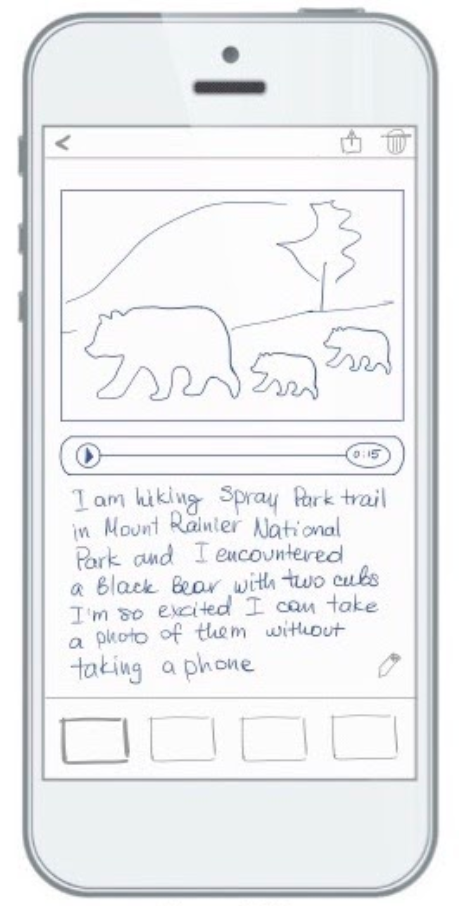 <
0:15
I am hiking Spray Park trail
in Mount Rainier National
Park and I encountered
a Black Bear with two cubs
I'm so excited I can take
a photo of them without
taking a phone